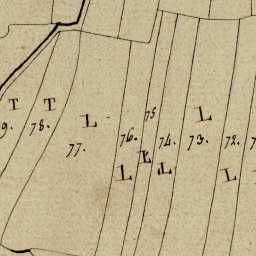 T T L L
9. 78. 77. 76. 75 74. 73. 72. 7
L L L L